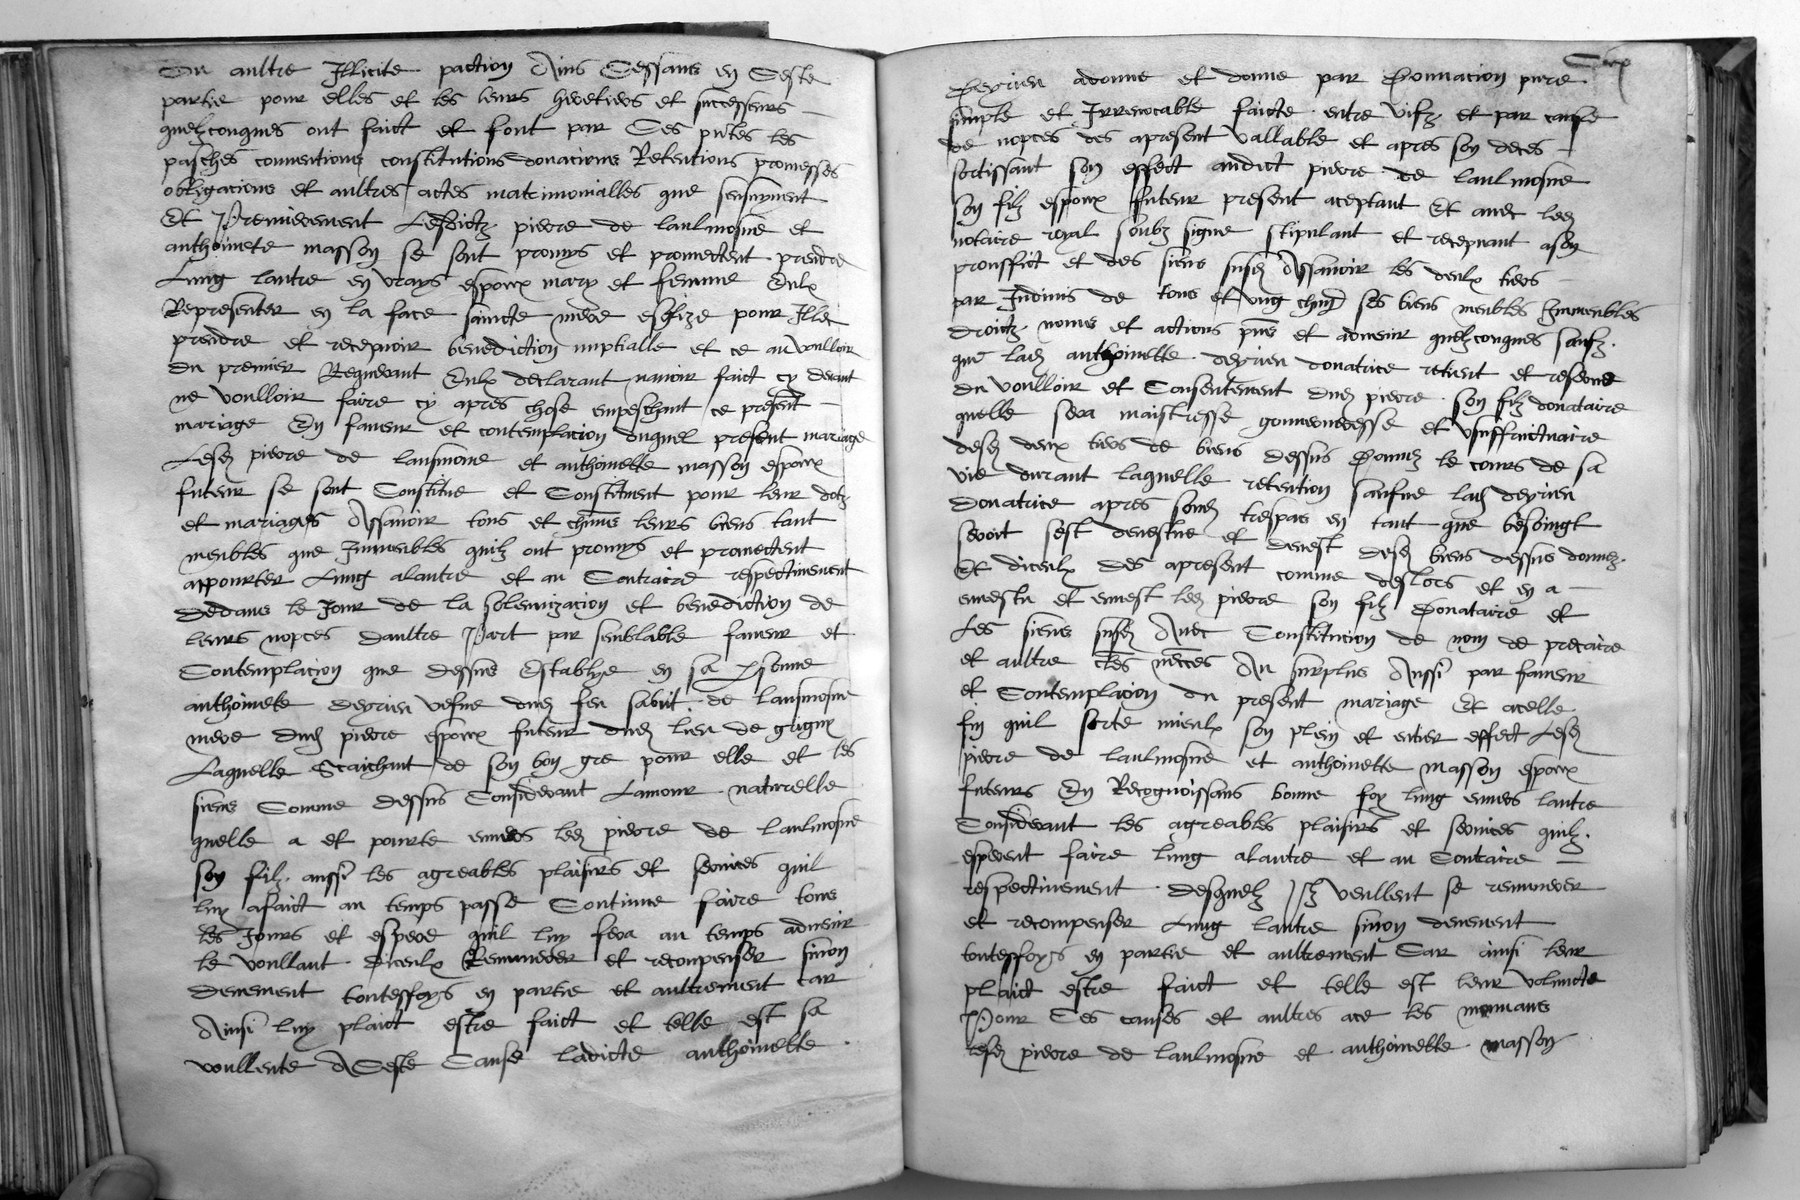 Ou aultre Illicite paction Ains Cessans en Ceste
partie pour elles et les leurs heretiers et successeurs
quelzconques ont faict et font par Ces pntes les
pasches conventions constitutions donacions Retentions promesses
obligacions et aultres actes matrimonialles que sensuyvent
Et Premierement Lesdictz pierre de laulmosne et
anthoinete masson se sont promys et promectent prendre
Lung lautre en vrays espoux mary et femme Eulx
Representer en la face saincte mere esglize pour Illec
prendre et recepvoir benediction nuptialle et ce au voulloir
du premier Requerant Eulx declarant navoir faict cy devant
ne voulloir faire cy apres chose empeschant ce present
mariage En faveur et contemplacion duquel present mariage
Lesd pierre de laulmosne et anthoinette masson espoux
futeur se sont Constitue et Constituent pour leur dotz
et mariages Assavoir tous et chuns leurs biens tant
meubles que Immeubles quilz ont promys et promectent
appourter Lung alautre et au Contraire respectivement
dedans le Jour de la solemnizacion et benediction de
leurs nopces daultre Part par semblable faveur et
Contemplacion que dessus Establye en sa Psonne
anthoinete deyrieu vefve dud feu sabut de laulmosne
mere dud pierre espoux futeur dud lieu de grigny
Laquelle Scaichant de son bon gre pour elle et les
siens Comme dessus Considerant Lamour naturelle
quelle a et pourte envers led pierre de laulmosne
son filz aussi les agreables plaisirs et services quil
luy afaict au temps passe Continue faire tous
les Jours et espere quil luy fera au temps advenir
le voullant diceulx Remunerer et recompenser sinon
deuement toutesfoys en partie et aultrement car
Ainsi luy plaict estre faict et telle est sa
voullente A Ceste Cause ladicte anthoinette
Deyrieu adonne et donne par Donnacion pure
simple et Irrevocable faicte entre vifz et par cause
de nopces des apresent vallable et apres son deces
sortissant son effect audict pierre de laulmosne
son filz espoux futeur present aceptant Et avec led
notaire royal soubz signe stipulant et recepvant ason
prouffict et des siens susd Assavoir les deulx tiers
par Indivis de tous et Ung chun ses biens meubles Immeubles
droictz noms et actions pns et advenir quelzconques saufz
que lad anthoinette deyrieu donatrice retient et reserve
du voulloir et Consentement dud pierre son filz donataire
quelle sera maistresse gouverneresse et usuffructuaire
desd deux tiers de biens dessus Donnez le cours de sa
vie durant laquelle retention saufve lad deyrieu
donatrice apres sond trespas en tant que besoingt
seroit sest devestue et devest desd biens dessus donnez
Et diceulx des apresent comme deslors et en a
envestu et envest led pierre son filz Donataire et
Les siens susd Avec Constitucion de nom de precaire
et aultre cles necces Au surplus Aussi par faveur
et Contemplacion du present mariage Et acelle
fin quil sorte mieulx son plein et entier effect Lesd
pierre de laulmosne et anthoinette masson espoux
futeurs En Recognoissans bonne foy lung envers lautre
Considerant les agreables plaisirs et services quilz
esperent faire lung alautre et au Contraire
respectivement desquelz Ilz veullent se remunerer
et recompenser Lung lautre sinon deuement
toutesfoys en partie et aultrement Car ainsi leur
plaict estre faict et telle est leur volunte
Pour Ces causes et aultres ace les mouvans
lesd pierre de laulmosne et anthoinette masson